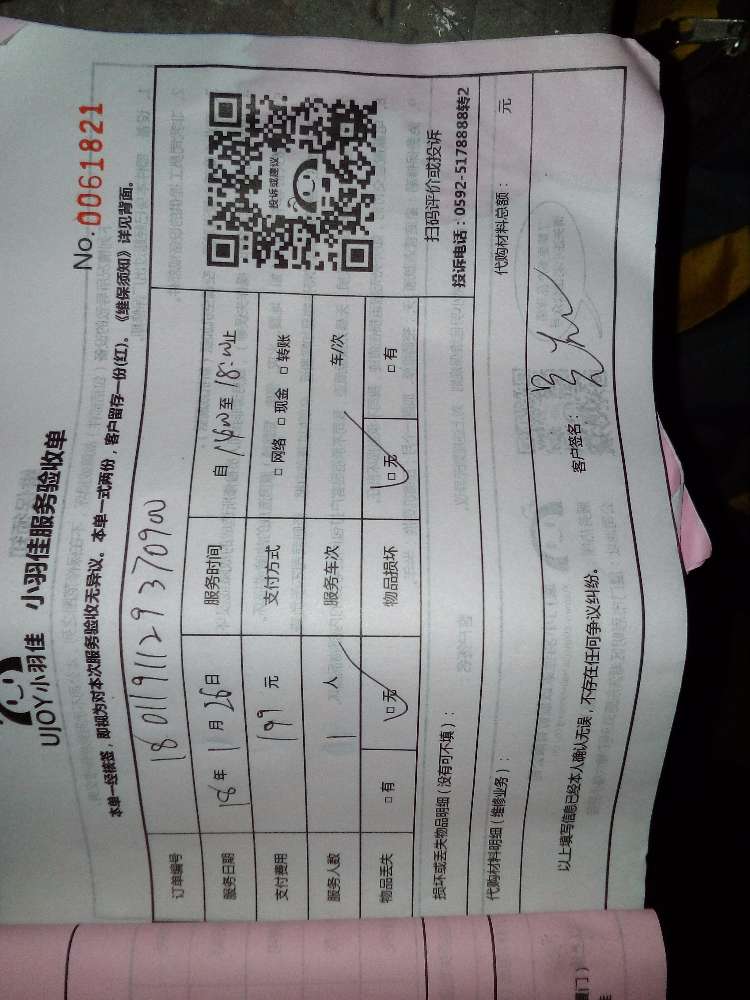 UJOY小羽佳 小羽佳服务验收单
No.0061821
本单一经核签，即视为对本次服务验收无异议。本单一式两份，客户留存一份(红)。《维保须知》详见背面。
订单编号 1801191129370900
服务日期 18年1月26日 服务时间 自14:00至18:00止
支付费用 199元 支付方式 □网络 □现金 □转账
服务人数 1人 服务车次 车/次
物品丢失 □有 □无 物品损坏 □无 □有
投诉或建议
扫码评价或投诉
投诉电话：0592-5178888转2
损坏或丢失物品明细（没有可不填）：
代购材料明细（维修业务）： 代购材料总额： 元
以上填写信息已经本人确认无误，不存在任何争议纠纷。 客户签名：